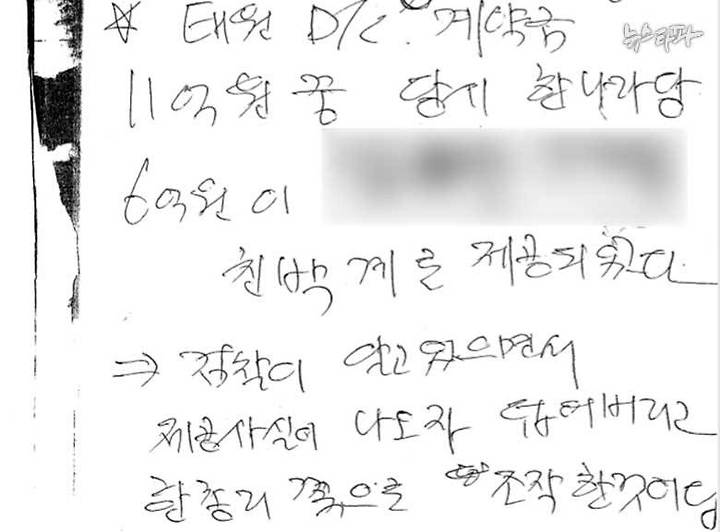 뉴스타파
☆ 태원 D/C. 계약금
11억원 꿍 당시 한나라당
6억원이
친박계로 제공되었다
⇒ 정확이 알고 있으면서
제공사실이 나도자 덮어버리고
한총리 쪽으로 조작한것이다